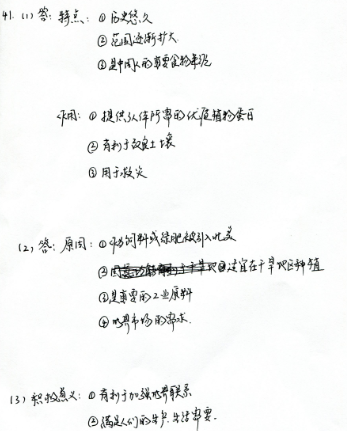 41. (1) 答: 特点: ① 历史悠久
② 范围逐渐扩大
③ 是中国人的重要食物来源
作用: ① 提供人体所需的优质植物蛋白
② 有利于改良土壤
③ 用于救灾
(2) 答: 原因: ① 作为饲料或绿肥被引入北美
② 适宜在干旱地区种植
③ 是重要的工业原料
④ 世界市场的需求.
(3) 积极意义: ① 有利于加强世界联系
② 满足人们的生产、生活需要.